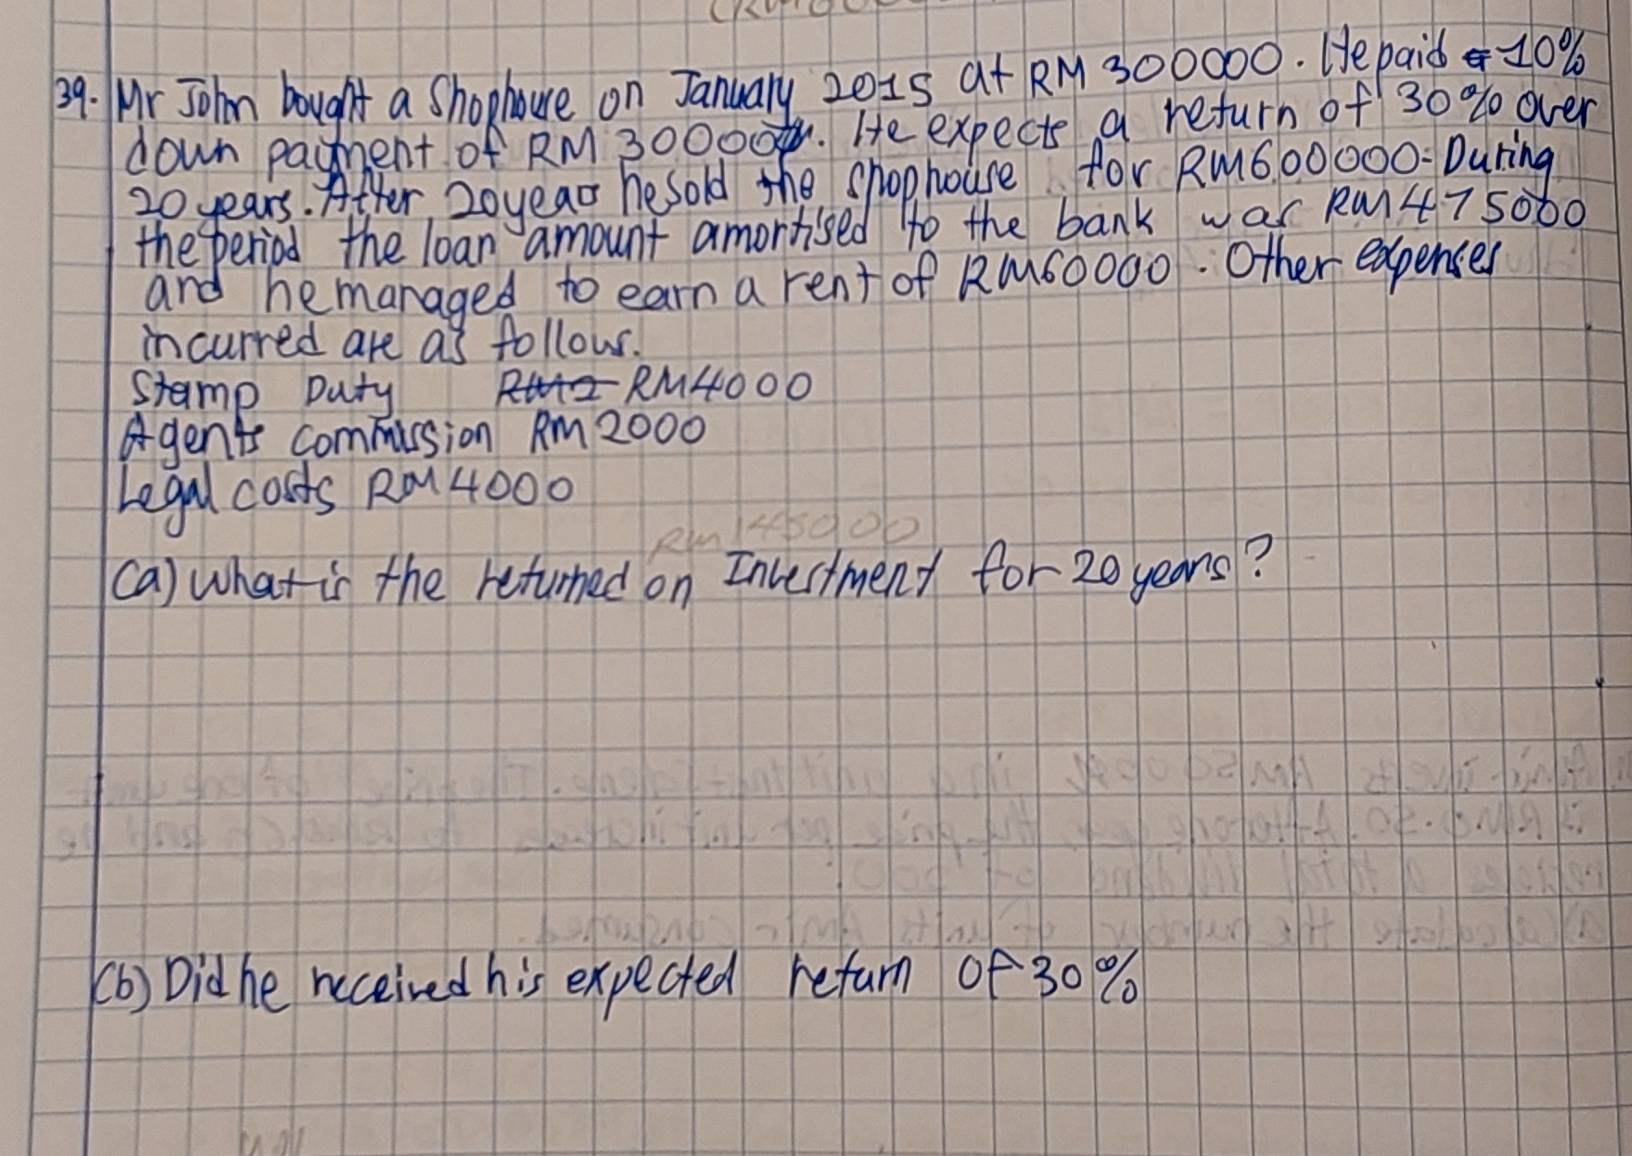 39. Mr John bought a Shophouse on January 2015 at RM 300000. He paid 10%
down payment of RM 30000. He expects a return of 30% over
20 years. After 20 years he sold the shophouse for RM600000. During
the period the loan amount amortised to the bank was RM475000
and he managed to earn a rent of RM60000. Other expenses
incurred are as follows.
Stamp Duty RM4000
Agents commission RM2000
Legal costs RM4000
RM145000
(a) What is the returned on Investment for 20 years?
(b) Did he received his expected return of 30%